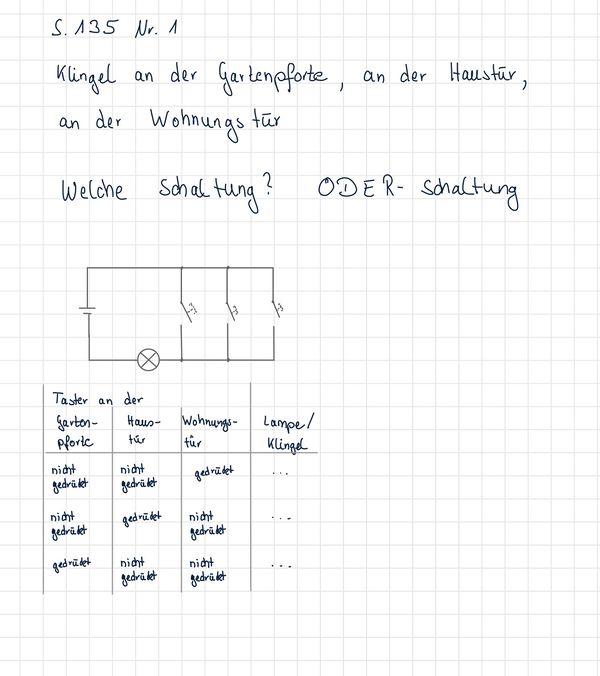 S. 135 Nr. 1
Klingel an der Gartenpforte, an der Haustür,
an der Wohnungstür
Welche Schaltung? ODER-Schaltung
Taster an der
Garten-
pforte
Haus-
tür
Wohnungs-
tür
Lampe/
Klingel
nicht
gedrückt
nicht
gedrückt
gedrückt
...
nicht
gedrückt
gedrückt
nicht
gedrückt
...
gedrückt
nicht
gedrückt
nicht
gedrückt
...